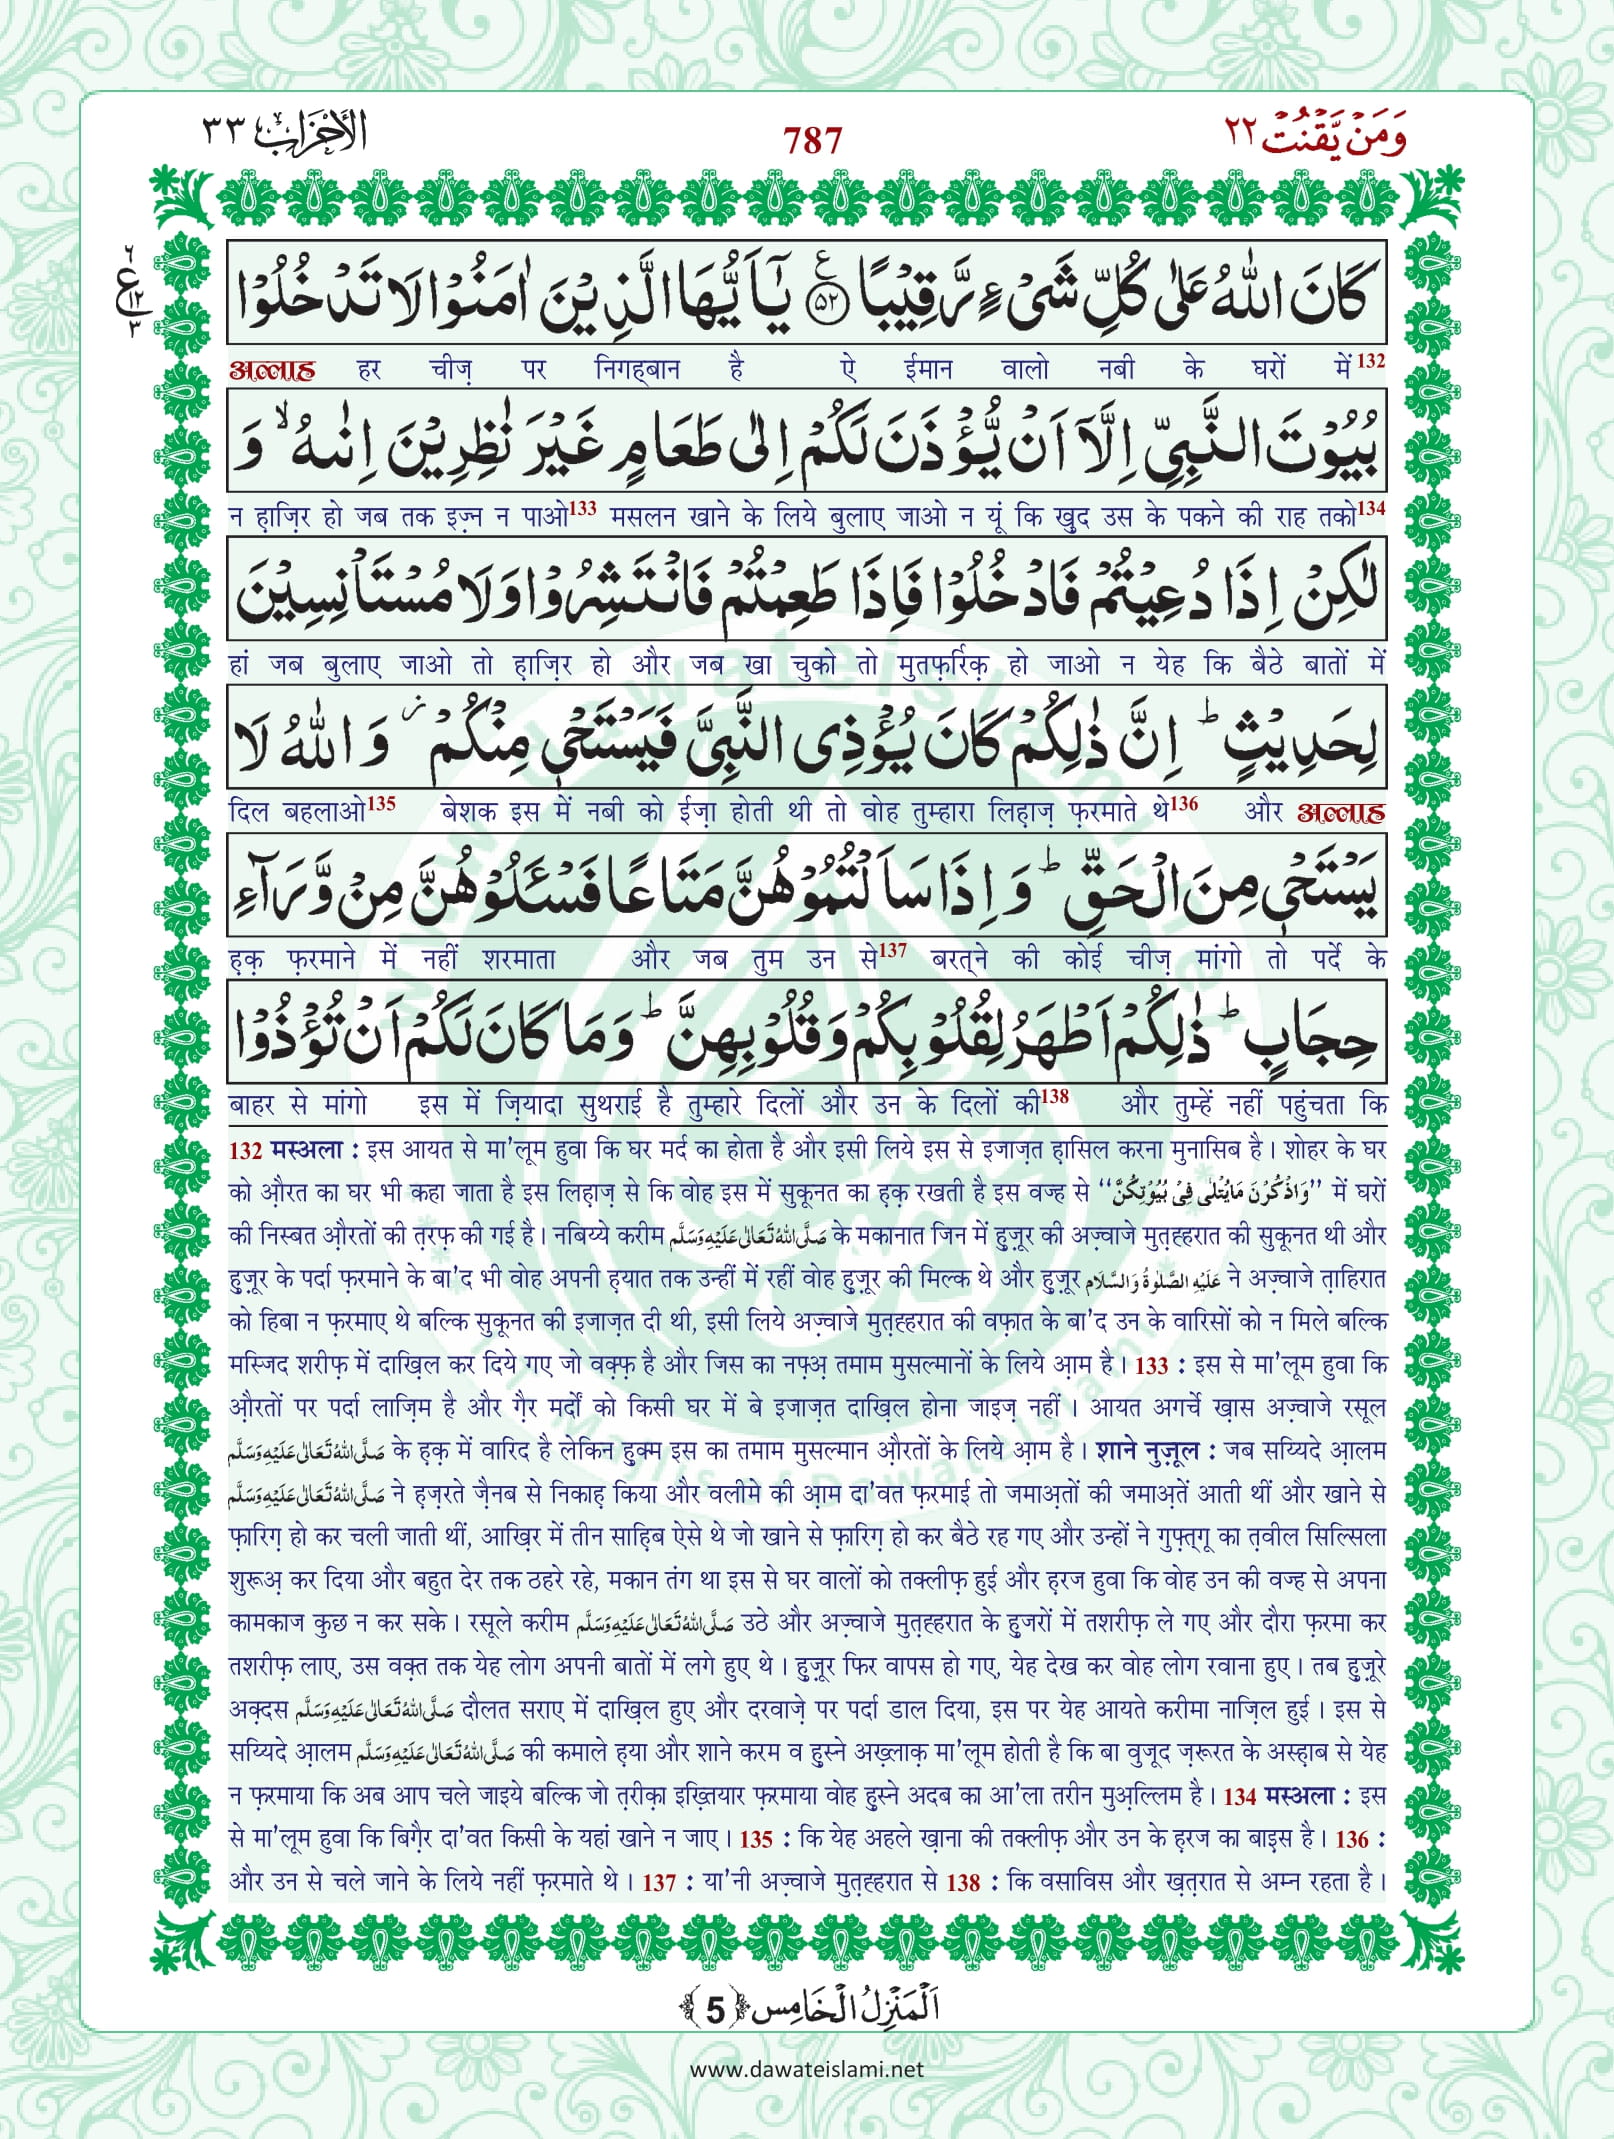 وَمَنْ يَّقْنُتْ ٢٢
787
الْاَحْزَاب ٣٣
كَانَ اللّٰهُ عَلٰى كُلِّ شَیْءٍ رَّقِیْبًا ﴿٥٢﴾ یٰۤاَیُّهَا الَّذِیْنَ اٰمَنُوْا لَا تَدْخُلُوْا
ع ٦ ١٢ ٣
अल्लाह हर चीज़ पर निगह्बान है ऐ ईमान वालो नबी के घरों में132
بُیُوْتَ النَّبِیِّ اِلَّاۤ اَنْ یُّؤْذَنَ لَكُمْ اِلٰى طَعَامٍ غَیْرَ نٰظِرِیْنَ اِنٰىهُ ۙ وَ
न ह़ाज़िर हो जब तक इज़्न न पाओ133 मसलन खाने के लिये बुलाए जाओ न यूं कि ख़ुद उस के पकने की राह तको134
لٰكِنْ اِذَا دُعِیْتُمْ فَادْخُلُوْا فَاِذَا طَعِمْتُمْ فَانْتَشِرُوْا وَ لَا مُسْتَاْنِسِیْنَ
हां जब बुलाए जाओ तो ह़ाज़िर हो और जब खा चुको तो मुतफ़र्रिक़ हो जाओ न येह कि बैठे बातों में
لِحَدِیْثٍ ؕ اِنَّ ذٰلِكُمْ كَانَ یُؤْذِی النَّبِیَّ فَیَسْتَحْیٖ مِنْكُمْ ؗ وَ اللّٰهُ لَا
दिल बहलाओ135 बेशक इस में नबी को ईज़ा होती थी तो वोह तुम्हारा लिहाज़ फ़रमाते थे136 और अल्लाह
یَسْتَحْیٖ مِنَ الْحَقِّ ؕ وَ اِذَا سَاَلْتُمُوْهُنَّ مَتَاعًا فَسْـَٔلُوْهُنَّ مِنْ وَّرَآءِ
ह़क़ फ़रमाने में नहीं शरमाता और जब तुम उन से137 बरत्ने की कोई चीज़ मांगो तो पर्दे के
حِجَابٍ ؕ ذٰلِكُمْ اَطْهَرُ لِقُلُوْبِكُمْ وَ قُلُوْبِهِنَّ ؕ وَ مَا كَانَ لَكُمْ اَنْ تُؤْذُوْا
बाहर से मांगो इस में ज़ियादा सुथराई है तुम्हारे दिलों और उन के दिलों की138 और तुम्हें नहीं पहुंचता कि
132 मस्अला : इस आयत से मा'लूम हुवा कि घर मर्द का होता है और इसी लिये इस से इजाज़त ह़ासिल करना मुनासिब है। शोहर के घर
को औ़रत का घर भी कहा जाता है इस लिह़ाज़ से कि वोह इस में सुकूनत का ह़क़ रखती है इस वज्ह से ‘‘وَاذْكُرْنَ مَا یُتْلٰى فِیْ بُیُوْتِكُنَّ’’ में घरों
की निस्बत औ़रतों की त़रफ़ की गई है। नबिय्ये करीम صَلَّى اللّٰهُ تَعَالٰى عَلَیْهِ وَسَلَّم के मकानात जिन में हुज़ूर की अज़्वाजे मुत़ह्हरात की सुकूनत थी और
हुज़ूर के पर्दा फ़रमाने के बा'द भी वोह अपनी ह़यात तक उन्हीं में रहीं वोह हुज़ूर की मिल्क थे और हुज़ूर عَلَیْهِ الصَّلٰوةُ وَالسَّلَام ने अज़्वाजे त़ाहिरात
को हिबा न फ़रमाए थे बल्कि सुकूनत की इजाज़त दी थी, इसी लिये अज़्वाजे मुत़ह्हरात की वफ़ात के बा'द उन के वारिसों को न मिले बल्कि
मस्जिद शरीफ़ में दाख़िल कर दिये गए जो वक़्फ़ है और जिस का नफ़्अ़ तमाम मुसल्मानों के लिये आ़म है। 133 : इस से मा'लूम हुवा कि
औ़रतों पर पर्दा लाज़िम है और ग़ैर मर्दों को किसी घर में बे इजाज़त दाख़िल होना जाइज़ नहीं। आयत अगर्चे ख़ास अज़्वाजे रसूल
صَلَّى اللّٰهُ تَعَالٰى عَلَیْهِ وَسَلَّم के ह़क़ में वारिद है लेकिन हुक्म इस का तमाम मुसल्मान औ़रतों के लिये आ़म है। शाने नुज़ूल : जब सय्यिदे आ़लम
صَلَّى اللّٰهُ تَعَالٰى عَلَیْهِ وَسَلَّم ने ह़ज़रते ज़ैनब से निकाह़ किया और वलीमे की आ़म दा'वत फ़रमाई तो जमाअ़तों की जमाअ़तें आती थीं और खाने से
फ़ारिग़ हो कर चली जाती थीं, आख़िर में तीन साह़िब ऐसे थे जो खाने से फ़ारिग़ हो कर बैठे रह गए और उन्हों ने गुफ़्त्गू का त़वील सिल्सिला
शुरूअ़ कर दिया और बहुत देर तक ठहरे रहे, मकान तंग था इस से घर वालों को तक्लीफ़ हुई और ह़रज हुवा कि वोह उन की वज्ह से अपना
कामकाज कुछ न कर सके। रसूले करीम صَلَّى اللّٰهُ تَعَالٰى عَلَیْهِ وَسَلَّم उठे और अज़्वाजे मुत़ह्हरात के हुजरों में तशरीफ़ ले गए और दौरा फ़रमा कर
तशरीफ़ लाए, उस वक़्त तक येह लोग अपनी बातों में लगे हुए थे। हुज़ूर फिर वापस हो गए, येह देख कर वोह लोग रवाना हुए। तब हुज़ूरे
अक़्दस صَلَّى اللّٰهُ تَعَالٰى عَلَیْهِ وَسَلَّم दौलत सराए में दाख़िल हुए और दरवाज़े पर पर्दा डाल दिया, इस पर येह आयते करीमा नाज़िल हुई। इस से
सय्यिदे आ़लम صَلَّى اللّٰهُ تَعَالٰى عَلَیْهِ وَسَلَّم की कमाले ह़या और शाने करम व हुस्ने अख़्लाक़ मा'लूम होती है कि बा वुजूद ज़रूरत के अस्ह़ाब से येह
न फ़रमाया कि अब आप चले जाइये बल्कि जो त़रीक़ा इख़्तियार फ़रमाया वोह हुस्ने अदब का आ'ला तरीन मुअ़ल्लिम है। 134 मस्अला : इस
से मा'लूम हुवा कि बिग़ैर दा'वत किसी के यहां खाने न जाए। 135 : कि येह अहले ख़ाना की तक्लीफ़ और उन के ह़रज का बाइस है। 136 :
और उन से चले जाने के लिये नहीं फ़रमाते थे। 137 : या'नी अज़्वाजे मुत़ह्हरात से 138 : कि वसाविस और ख़त़रात से अम्न रहता है।
اَلْمَنْزِلُ الْخَامِس ﴿5﴾
www.dawateislami.net